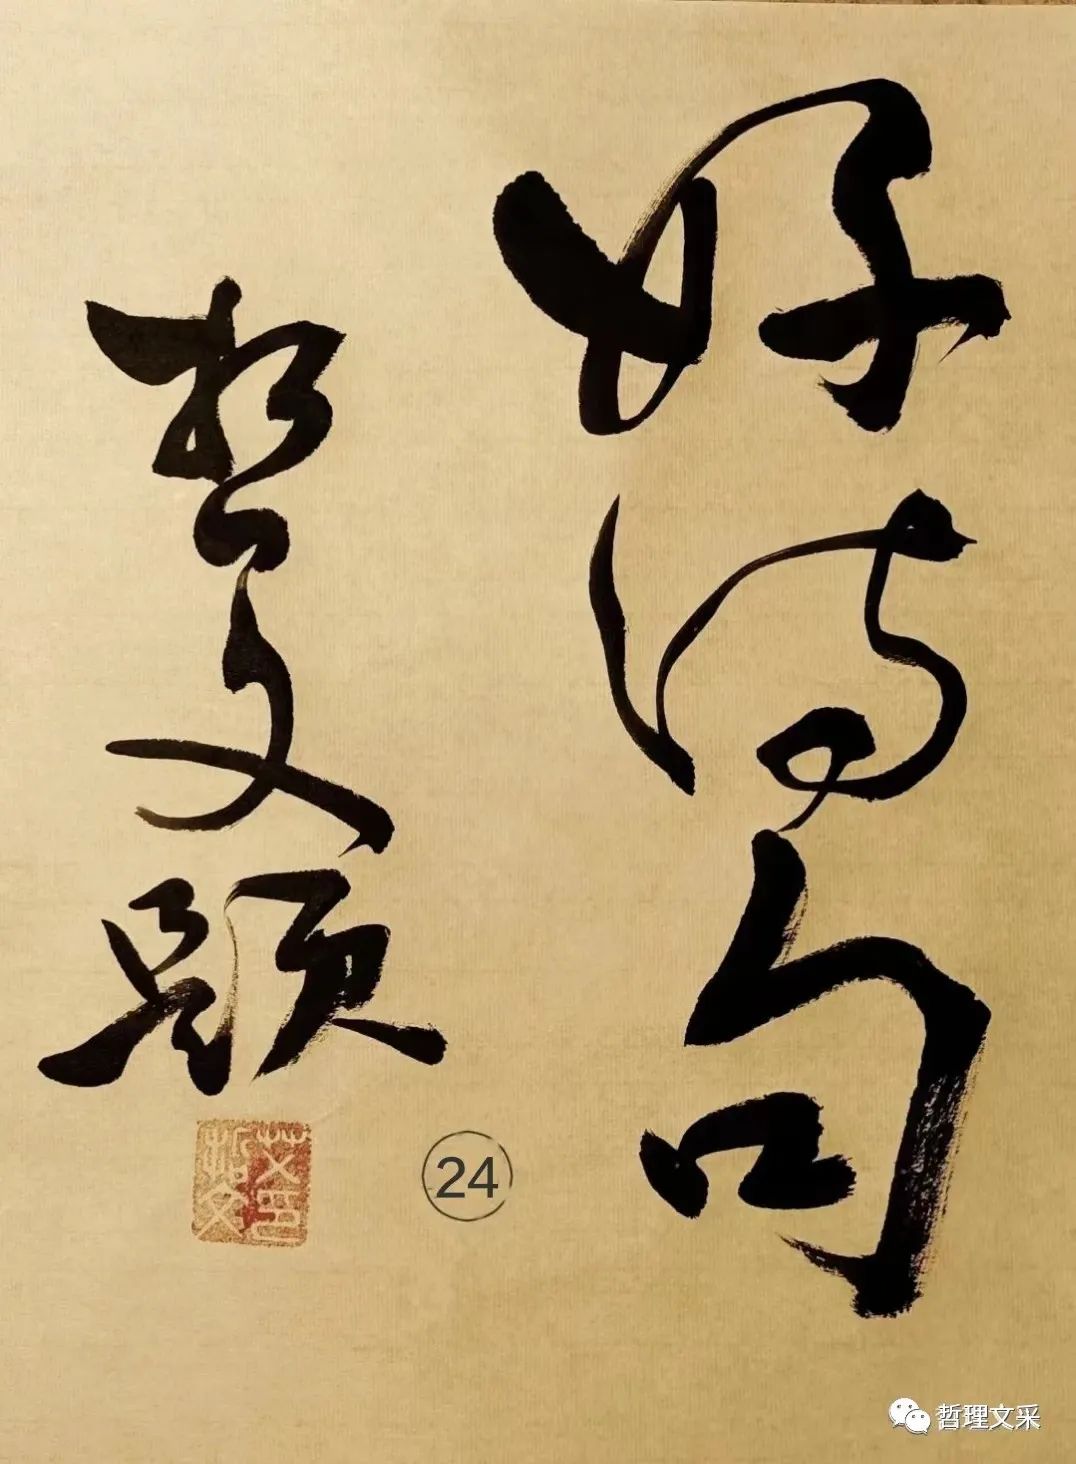 好诗句
哲文题
24
哲理文采